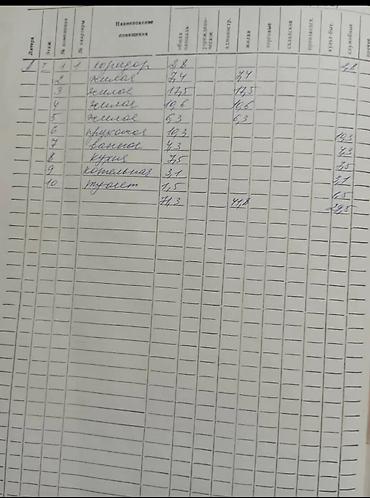 Литера Этаж № помещения № квартиры Наименование помещения общая площадь администр. жилая торговые складская
1 1 коридор 2,8 2,8
2 жилая 7,4 7,4
3 жилое 17,5 17,5
4 жилое 10,6 10,6
5 жилое 6,3 6,3
6 прихожая 10,3 10,3
7 ванное 4,3 4,3
8 кухня 7,5 7,5
9 котельная 3,1 3,1
10 туалет 1,5 1,5
71,3 41,8 29,5